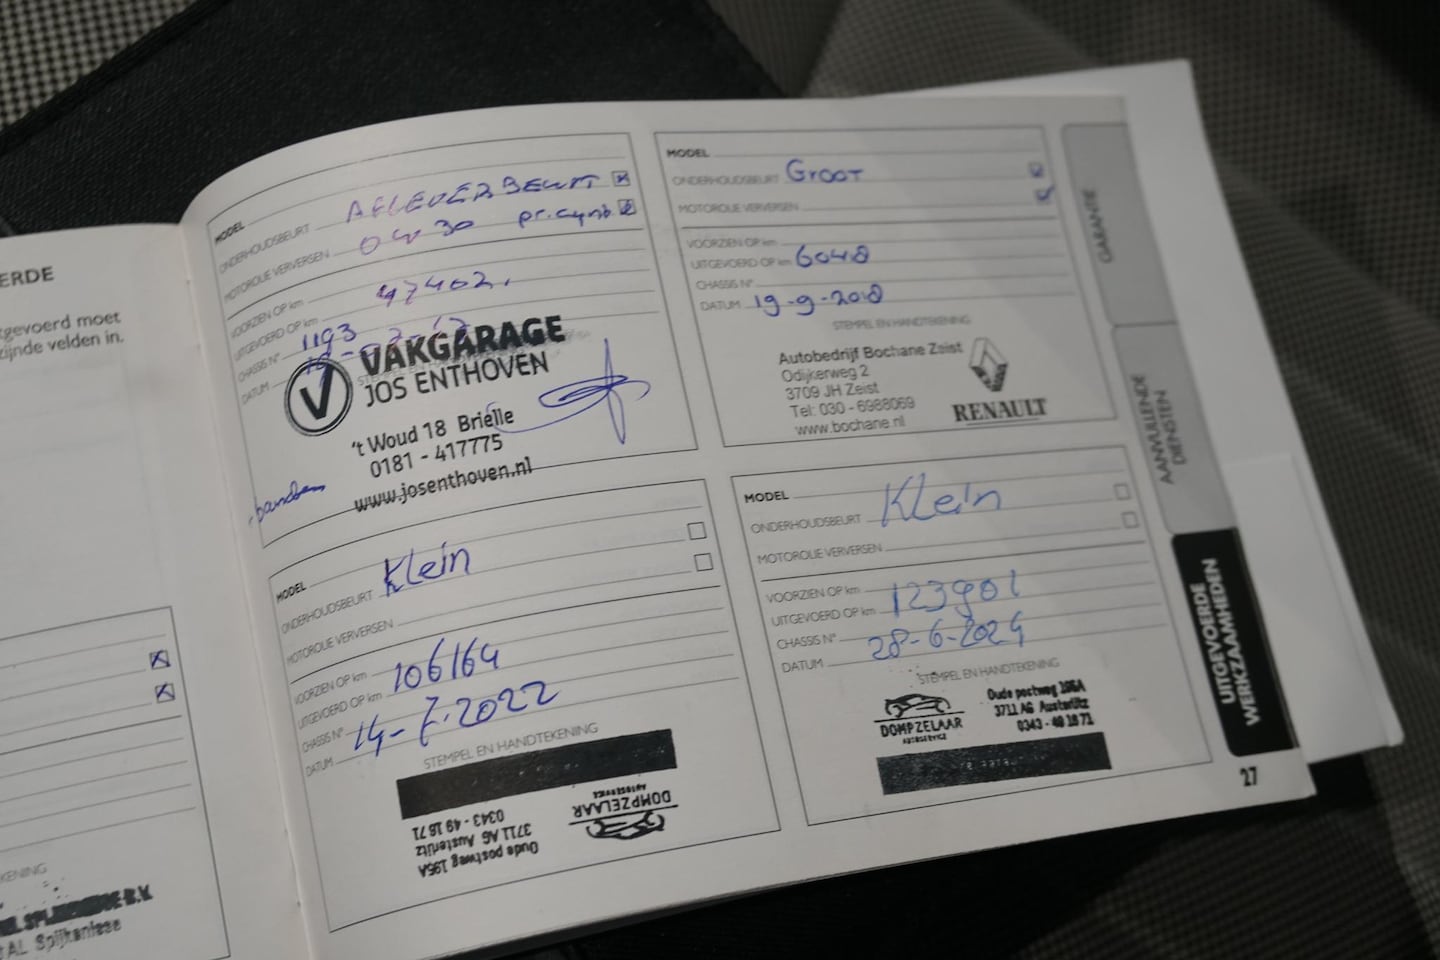 ERDE
tgevoerd moet
zijnde velden in.
KENING
AL Spijkenisse
MODEL
ONDERHOUDSBEURT AFLEVERBEURT
MOTOROLIE VERVERSEN 0W30
VOORZIEN OP km
UITGEVOERD OP km 47402.
CHASSIS N° 1193
DATUM
VAKGARAGE
JOS ENTHOVEN
't Woud 18 Brielle
0181 - 417775
www.josenthoven.nl
banden
MODEL
ONDERHOUDSBEURT Groot
MOTOROLIE VERVERSEN
VOORZIEN OP km
UITGEVOERD OP km 6048
CHASSIS N°
DATUM 19-9-2018
STEMPEL EN HANDTEKENING
Autobedrijf Bochane Zeist
Odijkerweg 2
3709 JH Zeist
Tel: 030 - 6988069
www.bochane.nl
RENAULT
MODEL
ONDERHOUDSBEURT Klein
MOTOROLIE VERVERSEN
VOORZIEN OP km
UITGEVOERD OP km 106164
CHASSIS N°
DATUM 14-7-2022
STEMPEL EN HANDTEKENING
DOMPZELAAR
AUTOSERVICE
Oude postweg 195A
3711 AG Austerlitz
0343 - 49 16 71
MODEL
ONDERHOUDSBEURT Klein
MOTOROLIE VERVERSEN
VOORZIEN OP km
UITGEVOERD OP km 123901
CHASSIS N°
DATUM 28-6-2024
STEMPEL EN HANDTEKENING
DOMPZELAAR
AUTOSERVICE
Oude postweg 195A
3711 AG Austerlitz
0343 - 49 16 71
GARANTIE
AANVULLENDE
DIENSTEN
UITGEVOERDE
WERKZAAMHEDEN
27